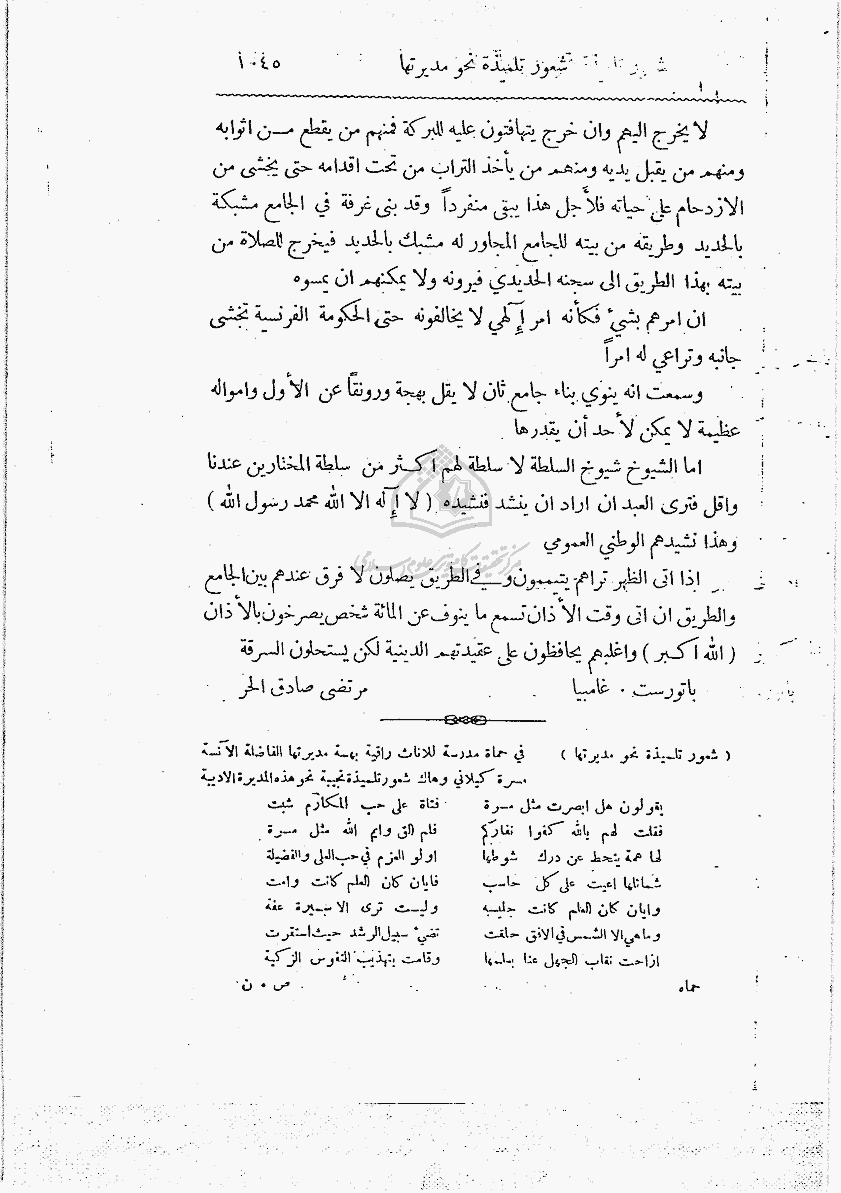 شعور تلميذة نحو مديرتها ١٠٤٥
لا يخرج اليهم وان خرج يتهافتون عليه للبركة فمنهم من يقطع مـن اثوابه
ومنهم من يقبل يديه ومنهم من يأخذ التراب من تحت اقدامه حتى يخشى من
الازدحام على حياته فلأجل هذا يبقى منفرداً وقد بنى غرفة في الجامع مشبكة
بالحديد وطريقه من بيته للجامع المجاور له مشبك بالحديد فيخرج للصلاة من
بيته بهذا الطريق الى سجنه الحديدي فيرونه ولا يمكنهم ان يمسوه
ان امرهم بشيء فكأنه امر إلهي لا يخالفونه حتى الحكومة الفرنسية تخشى
جانبه وتراعي له امراً
وسمعت انه ينوي بناء جامع ثان لا يقل بهجة ورونقاً عن الأول وامواله
عظيمة لا يمكن لأحد أن يقدرها
اما الشيوخ شيوخ السلطة لا سلطة لهم اكثر من سلطة المختارين عندنا
واقل فترى العبد ان اراد ان ينشد فنشيده ( لا إله الا الله محمد رسول الله )
وهذا نشيدهم الوطني العمومي
إذا اتى الظهر تراهم يتيممون وفي الطريق يصلون لا فرق عندهم بين الجامع
والطريق ان اتى وقت الأذان تسمع ما ينوف عن المائة شخص يصرخون بالأذان
( الله اكبر ) واغلبهم يحافظون على عقيدتهم الدينية لكن يستحلون السرقة
باتورست . غامبيا مرتضى صادق الحر
( شعور تلميذة نحو مديرتها ) في حماة مدرسة للاناث راقية بهمة مديرتها الفاضلة الآنسة
مسرة كيلاني وهاك شعور تلميذة نجيبة نحو هذه المديرة الاديبة
يقولون هل ابصرت مثل مسرة فتاة على حب المكارم شبت
فقلت لهم بالله كفوا نفاركم فلم الق وايم الله مثل مسرة
لها همة ينحط عن درك شوطها اولو العزم في حب العلى والفضيلة
شمائلها اعيت على كل حاسب فايان كان العلم كانت وامت
وايان كان العلم كانت جليسه وليست ترى الا سميرة عفة
وما هي الا الشمس في الافق حلقت تضيء سبيل الرشد حيث استقرت
ازاحت نقاب الجهل عنا بعلمها وقامت بتهذيب النفوس الزكية
حماه ص . ن